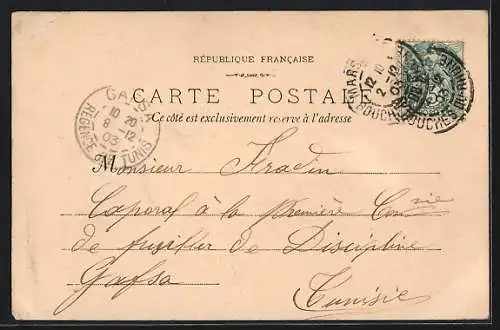 RÉPUBLIQUE FRANÇAISE
CARTE POSTALE
Ce côté est exclusivement réservé à l'adresse
GAFSA
10 20
8 -12
03
REGENCE DE TUNIS
12 10
2 -12
03
BOUCHES
Monsieur Fradin
Caporal à la première Cnie
de fusilier de Discipline
Gafsa
Tunisie